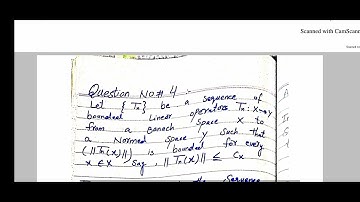 Scanned with CamScann
Question No# 4 :-
Let { Tn } be a sequence of
bounded Linear operators Tn: X→y
from a Banach space X to
a Normed space y such that
(||Tn(x)||) is bounded for every
x ∈ X say, ||Tn(x)|| ≤ Cx
the sequence